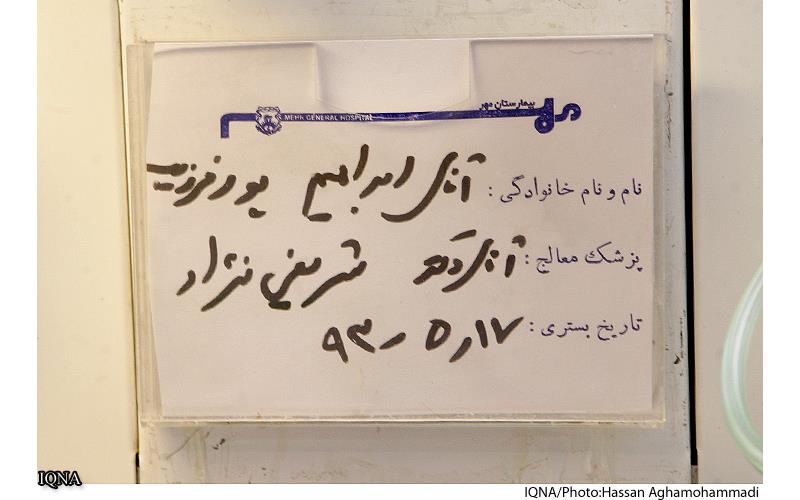 بیمارستان مهر
MEHR GENERAL HOSPITAL
نام و نام خانوادگی : آقای ابراهیم پورفرزیب
پزشک معالج : آقای دکتر شریفی نژاد
تاریخ بستری : ۹۳/۵/۱۷
IQNA
IQNA/Photo:Hassan Aghamohammadi